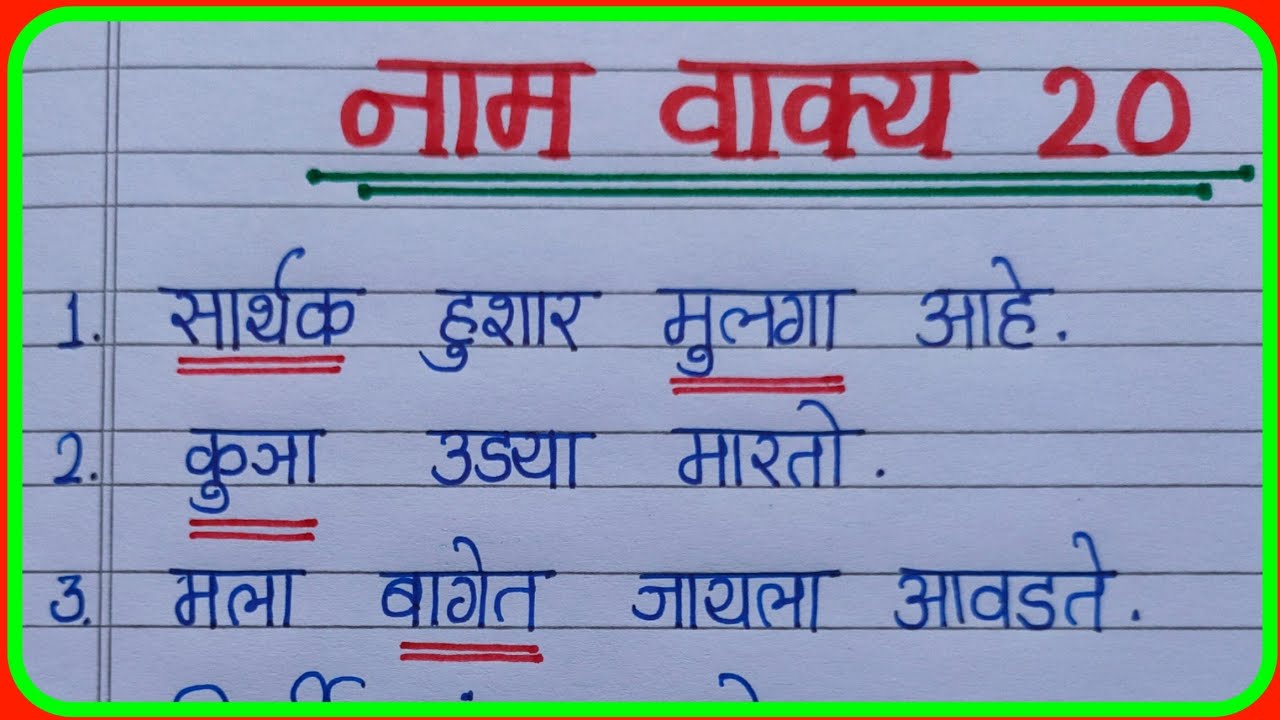 नाम वाक्य 20
1. सार्थक हुशार मुलगा आहे.
2. कुत्रा उड्या मारतो.
3. मला बागेत जायला आवडते.